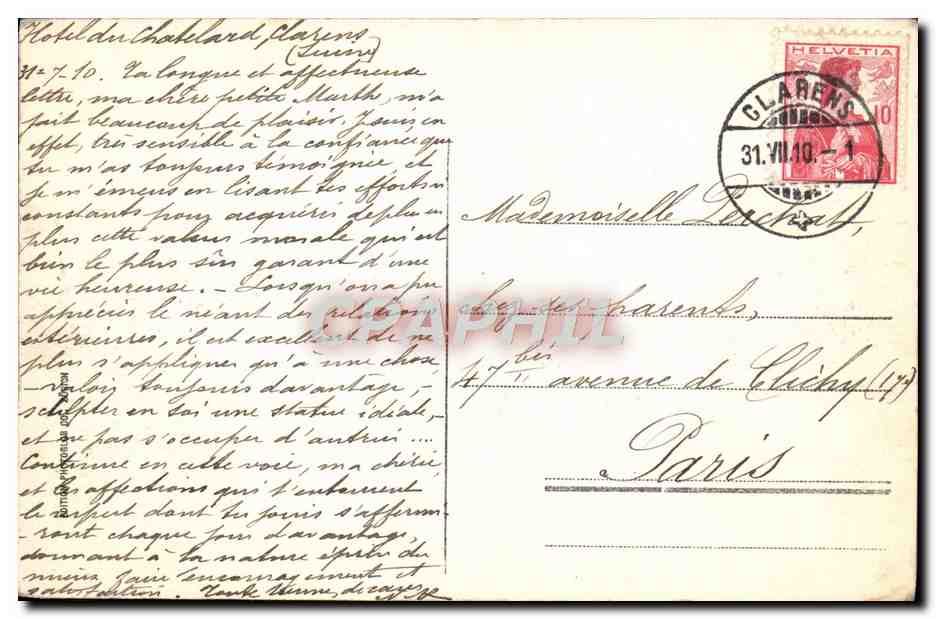 Hotel du Chatelard, Clarens
(Suisse)
31=7-10. Ta longue et affectueuse
lettre, ma chère petite Marthe, m'a
fait beaucoup de plaisir. Je suis en
effet, très sensible à la confiance que
tu m'as toujours témoignée et
je m'émeus en lisant tes efforts
constants pour acquérir de plus en
plus cette valeur morale qui est
bien le plus sûr garant d'une
vie heureuse. - Lorsqu'on a pu
apprécier le néant des relations
extérieures, il est excellent de ne
plus s'appliquer qu'à une chose
- valoir toujours davantage, -
sculpter en soi une statue idéale,
et ne pas s'occuper d'autrui ....
Continue en cette voie, ma chérie,
et les affections qui t'entourent
le respect dont tu jouis s'affermi-
ront chaque jour davantage,
donnant à ta nature éprise du
mieux faire encouragement et
satisfaction. Toute tienne,
HELVETIA
10
CLARENS
31.VII.10.-1
Mademoiselle
chez ses parents,
47 bis avenue de Clichy (17e)
Paris
CPAPHIL